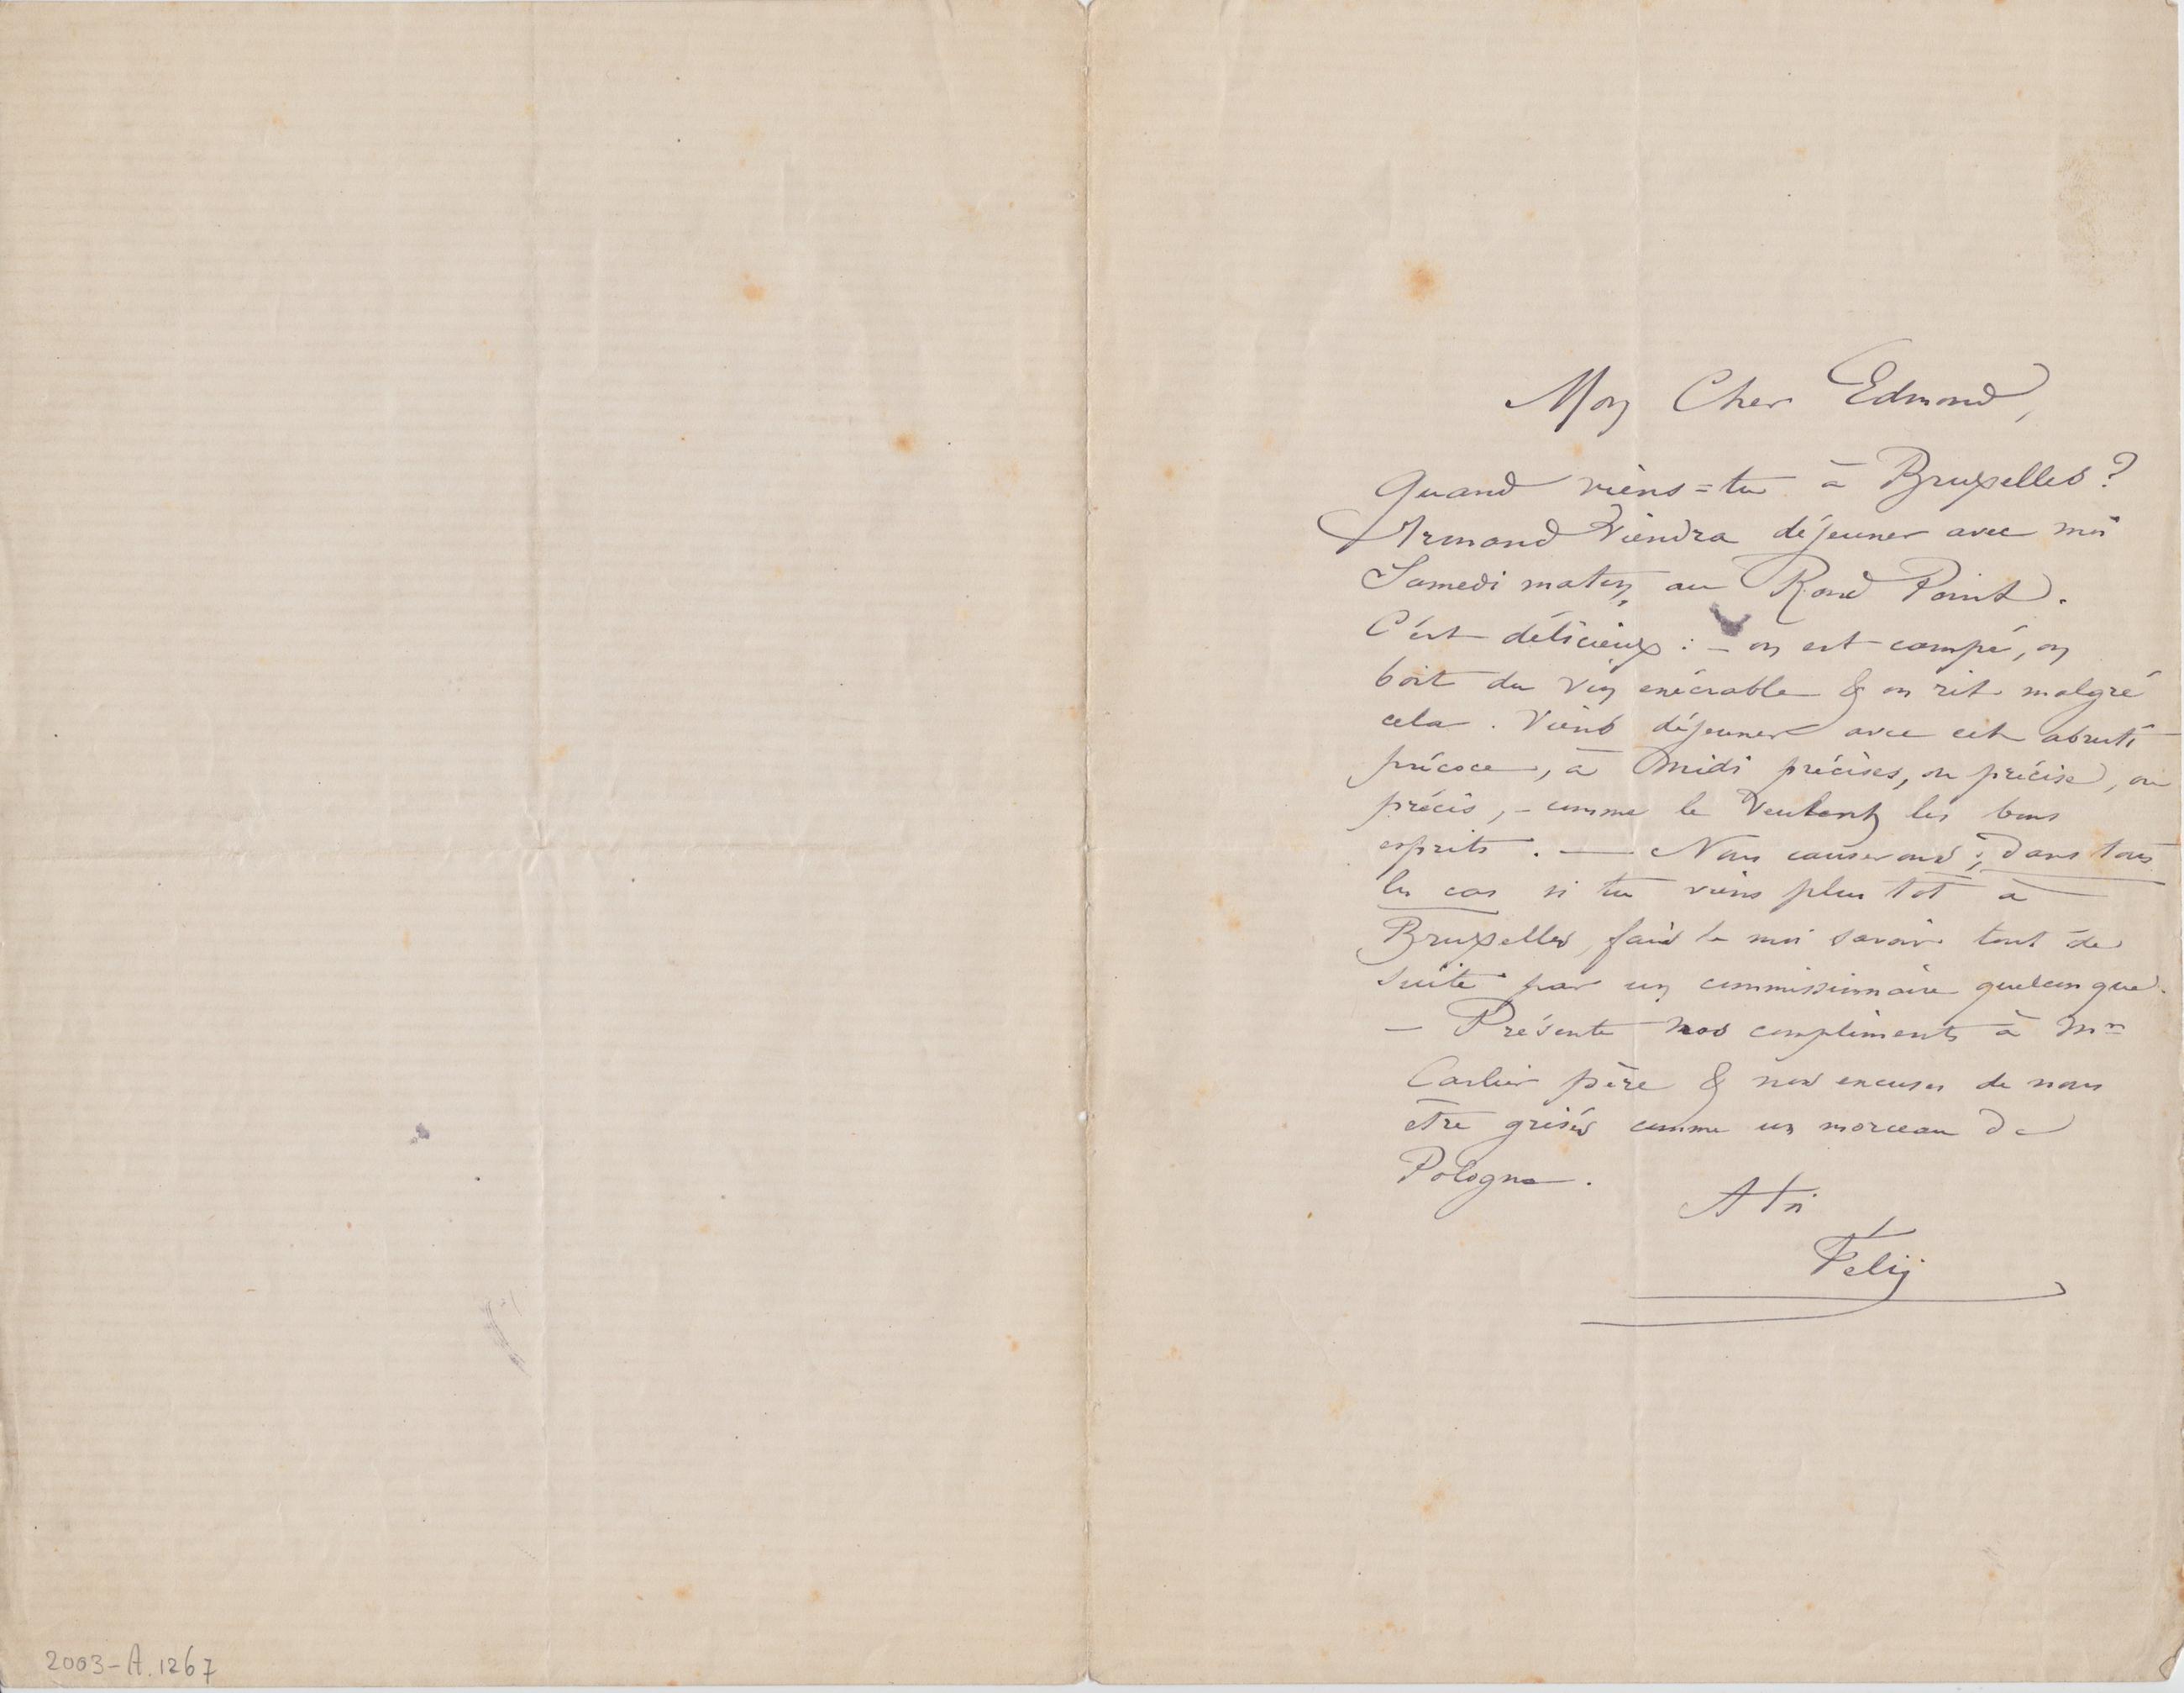 Mon Cher Edmond,
Quand viens=tu à Bruxelles?
Armand Viendra déjeuner avec moi
Samedi matin, au Rond Point.
C'est délicieux : – on est campé, on
boit du vin exécrable & on rit malgré
cela. Viens déjeuner avec cet abruti
précoce, à midi précises, ou précise, ou
précis, – comme le veulent les bons
esprits. — Nous causerons; dans tous
les cas si tu viens plus tot à
Bruxelles, fais le moi savoir tout de
suite par un commissionnaire quelconque.
– Présente nos compliments à Mr
Carlier père & nos excuses de nous
être grisés comme un morceau de
Pologne.
A toi
Félix
2003-A.1267